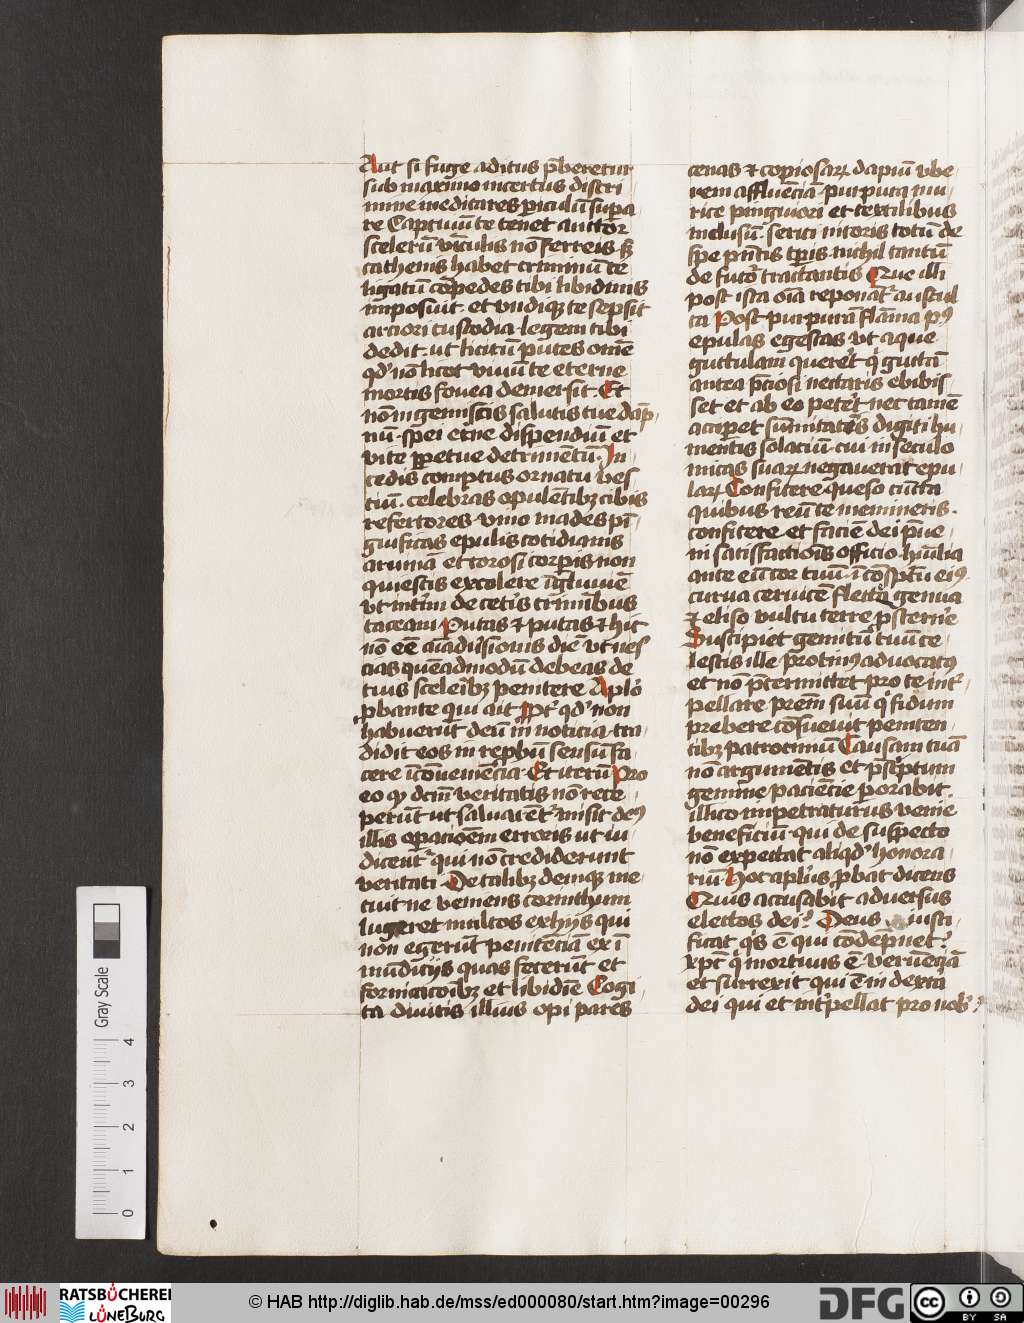 Aut si fuge aditus p̄beretur
sub maximo incertus discri
mine meditares piculū supa
re Captiuū te tenet auctor
scelerū vīculis nō ferreis sʒ
cathenis habet criminū te
ligatū cōpedes tibi libidinis
imposuit et vndiqʒ te sepsit
arciori custodia legem tibi
dedit ut licitū putes om̄e
qd' nō licet viuū te eterne
mortis fouea demersit Et
nō ingemiscis salutis tue dāp
nū spei et̄ne dispendiū et
vite ppetue detrimentū In
cedis comptus ornatu ves
tiū celebras opulētibʒ cibis
refertores vino mades pī
guificas epulis cotidianis
aruinā et torosi corpis non
quiescis excolere īgluuiē
vt int'im de cet'is criminibus
taceam Putas et putas et hic
nō eē aīaduˀsionis diē vt nes
cias quēadmodū debeas de
tuis sceleribʒ penitere Aplō
pbante qui ait Ptˀ qd' non
habuerūt deū in noticia tra
didit eos in repbū sensū fa
cere īcōueniēcia Et iterū Pro
eo qʒ dcm̄ veritatis nō rece
perūt ut salui eētˀ misit deꝰ
illis opacioēm erroris ut iu
dicentˀ qui nō crediderunt
veritati De talibʒ deniqʒ me
tuit ne veniens corinthum
lugeret multos ex hijs qui
non egerūt penitēciā ex ī
mūdicijs quas fecerūt et
fornicacōibʒ et libidīe Cogi
ta diuitis illius opi pares
cenas et copiosaꝝ dapiū vbe
rem affluēciā purpura mu
rice pinguiori et textilibus
inclusū serici nitoris totū de
spe pn̄tis tp̄is nichil tantū
de futo' tractantis Que illi
post ista oīa reponātˀ auscul
ta Post purpurā flāma pꝰ
epulas egestas vt aque
guttulam querēt qˀ guttā
antea p̄ciosi nectaris ebibis
set et ab eo petet nec tamē
aciperet sūmitatēs digiti hu
mentis solaciū cui in seculo
micas suaꝝ negauerat epu
laꝝ Confitere queso cūcta
quibus reū te memineris
confitere et faciē dei p̄ue
ni satisfactiōis officio hūilia
ante eū cor tuū ī cōspc̄tu eiꝰ
curua ceruicē flecte genua
et eliso vultu terre pstern'e
Suscipiet gemitū tuū ce
lestis ille protinꝰ aduocatꝰ
et nō p̄termittet pro te int'
pellare prem̄ suū qˀ fidum
prebere cōsueuit peniten
tibʒ patrociniū Causam tuā
nō argumētis et pscˀptum
gemine paciēcie porabit
illico impetraturus venie
beneficiū qui de suspecto
nō expectat aliqd' honora
riū Hoc aplˀus pbat dicens
Quis accusabit aduersus
electos dei? Deus iusti
ficat qˀs ē qui cōdēpnet?
xpc̄ qˀ mortuus ē veruēciā
et surrexit qui ē in dextˀa
dei qui et int'pellat pro nob'?
Gray Scale
4
3
2
1
0
RATSBÜCHEREI
LÜNEBURG
© HAB http://diglib.hab.de/mss/ed000080/start.htm?image=00296
DFG
cc
BY SA